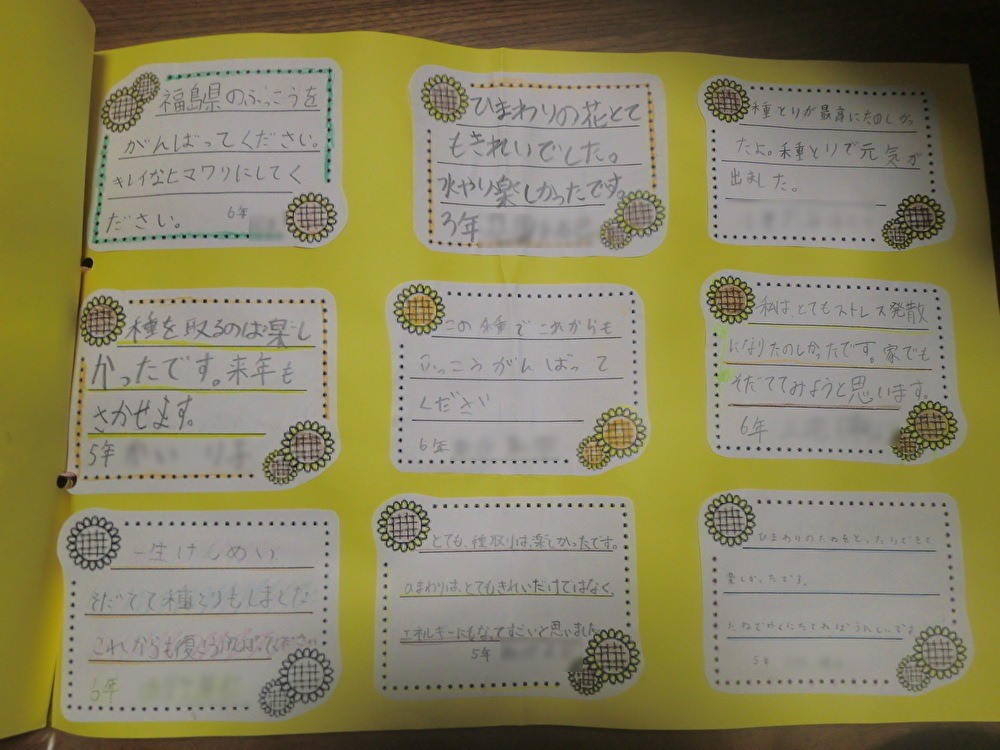 福島県のふっこうを
がんばってください。
キレイなヒマワリにしてく
ださい。
6年
ひまわりの花とて
もきれいでした。
水やり楽しかったです。
3年
種とりが最高にたのしかっ
たよ。種とりで元気が
出ました。
種を取るのは楽し
かったです。来年も
さかせます。
5年
この種でこれからも
ふっこうがんばって
ください
6年
私はとてもストレス発散
になりたのしかったです。家でも
そだててみようと思います。
6年
一生けんめい
そだてて種とりもしました
これからも復こうがんばってください
6年
とても、種取りは、楽しかったです。
ひまわりは、とてもきれいだけではなく、
エネルギーにもなってすごいと思いました。
5年
ひまわりのたねを
楽しかったです。
たねでやくにたてればうれしいです
5年